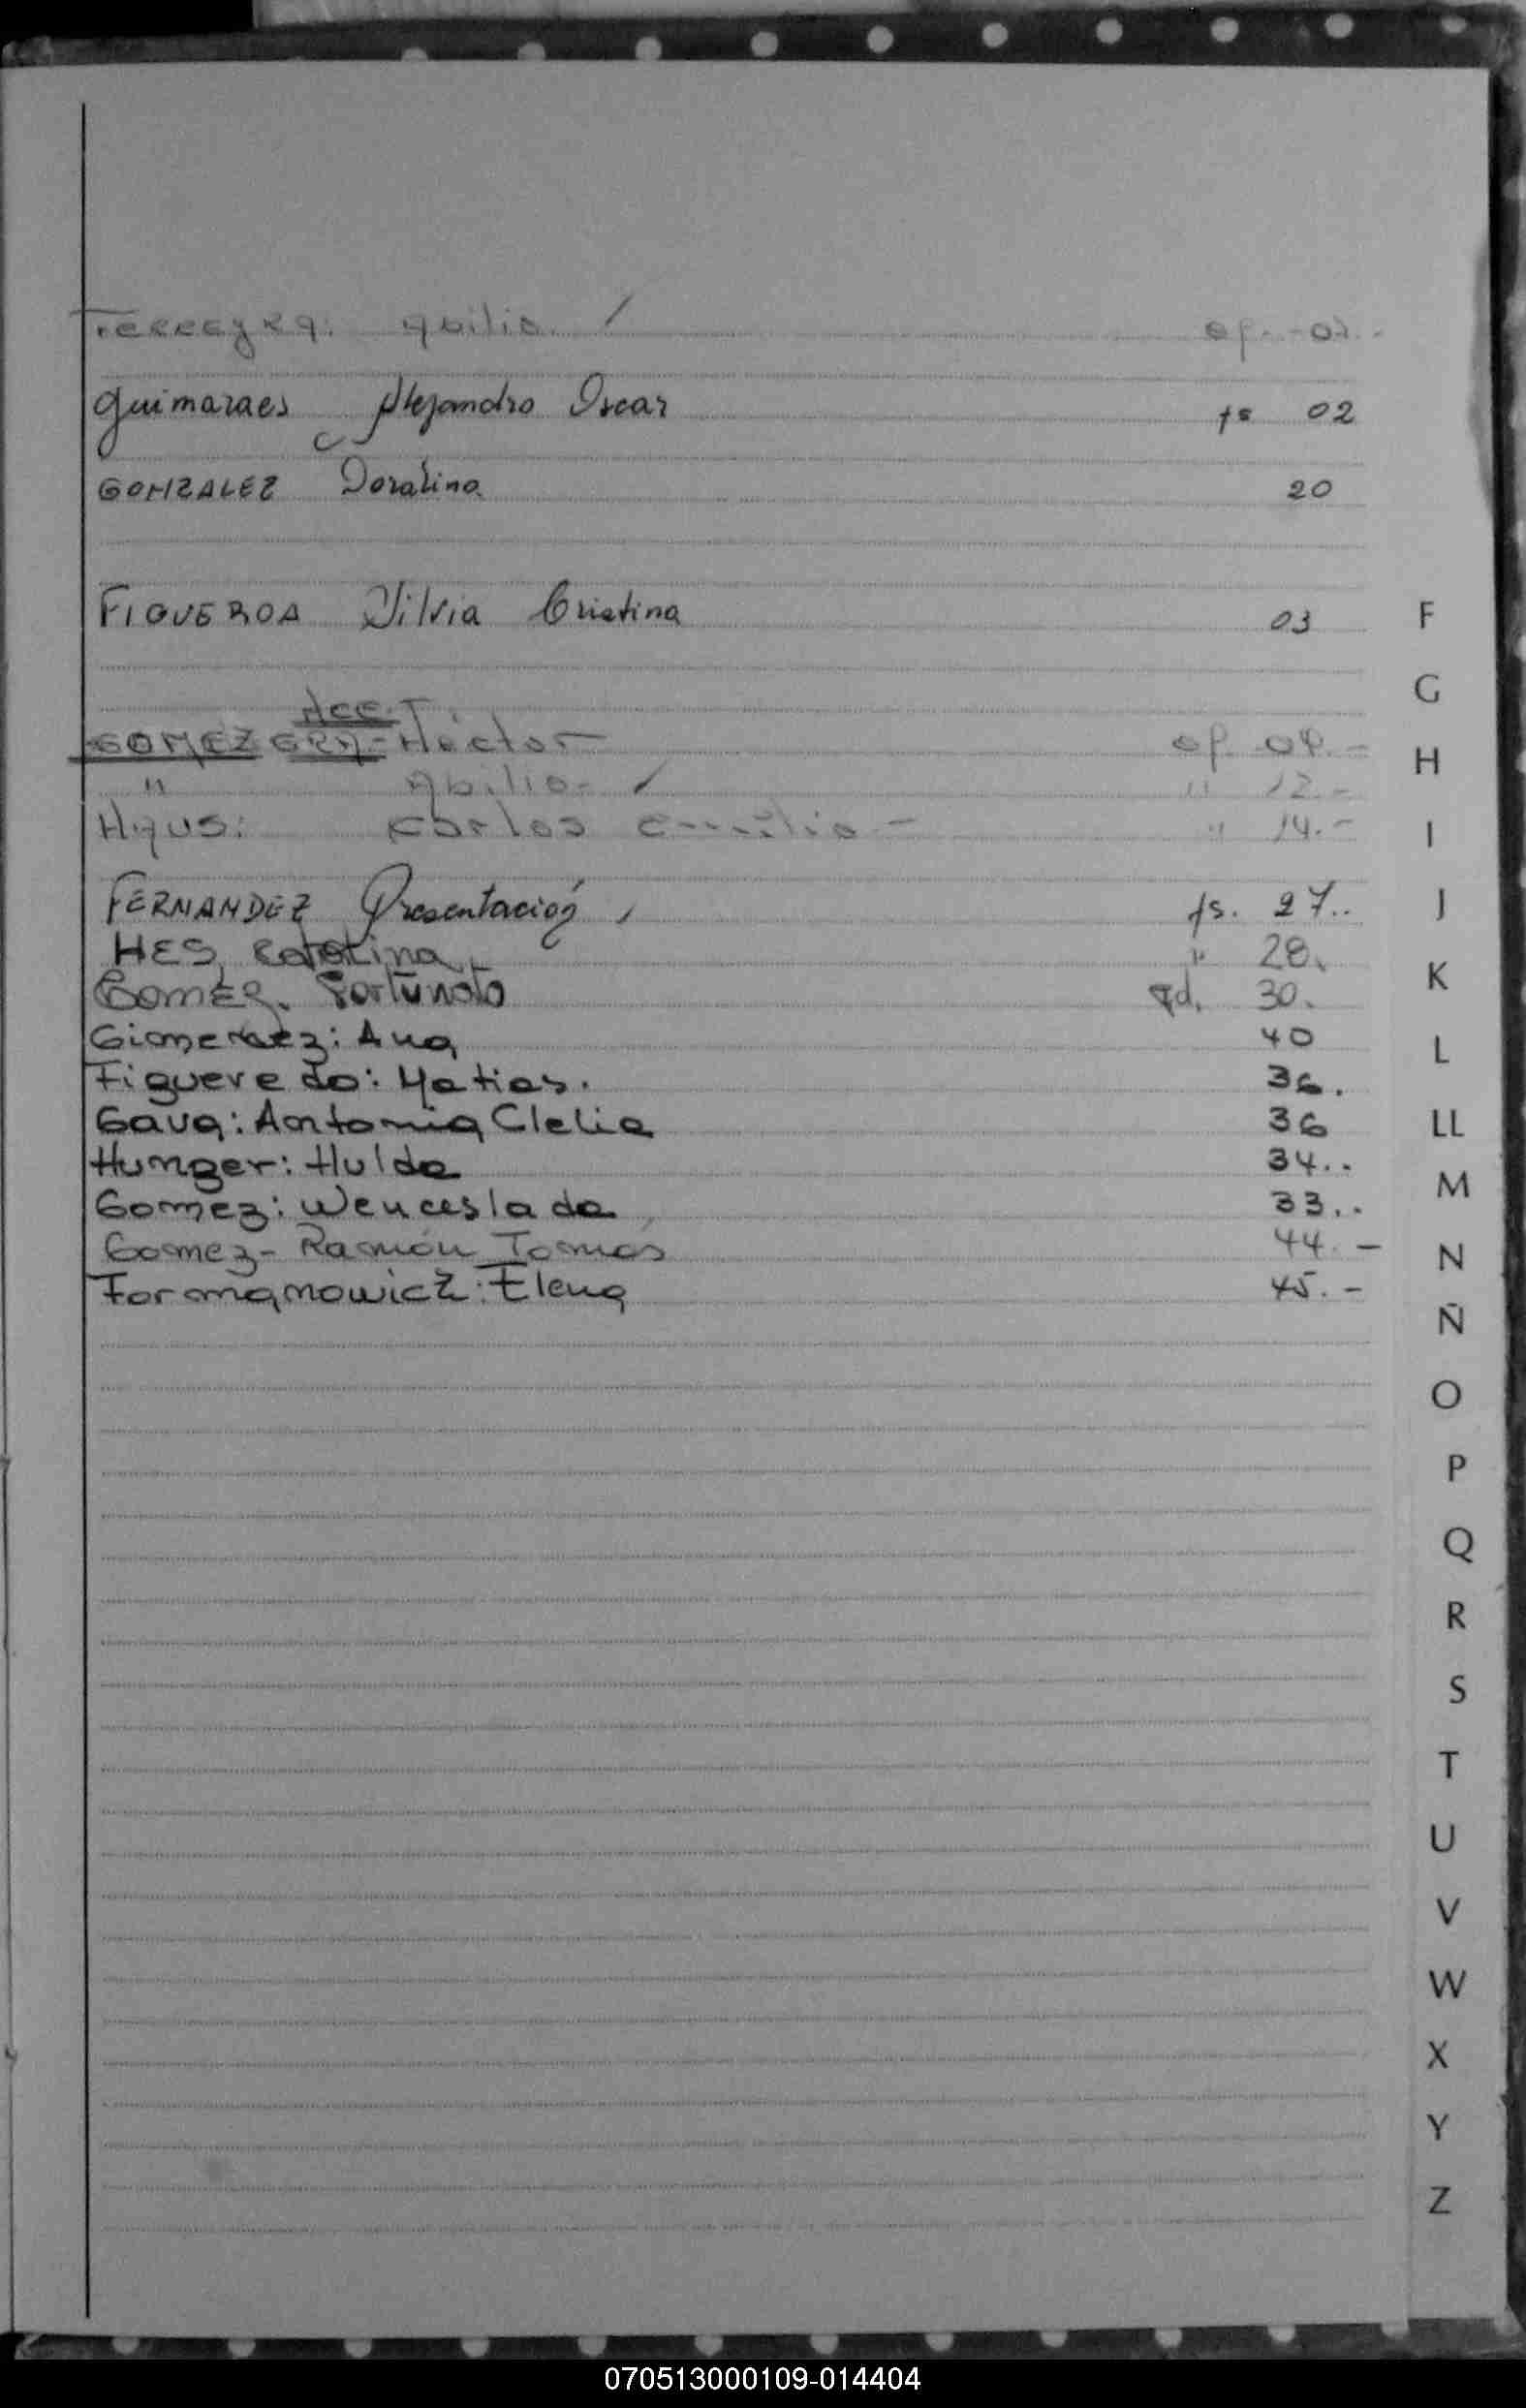 Ferreyra: Abilio. / of. 02.-
Guimaraes Alejandro Oscar fs 02
GONZALEZ Doralina 20
FIGUEROA Silvia Cristina 03
F
G
GOMEZ Héctor of 04.-
H
" Abilio- / " 12.-
Carlos Emilio - " 14.-
I
FERNANDEZ Presentación fs. 27..
J
HES, Catalina " 28.
K
Gomez. Fortunato 30.
Gimenez: Ana 40
L
Figueredo: Matias. 36.
Gava: Antonia Clelia 36
LL
Hunger: Hulda 34..
M
Gomez: Wenceslada 33..
Gomez- Ramón Tomas 44.-
N
Foromanowicz: Elena 45.-
Ñ
O
P
Q
R
S
T
U
V
W
X
Y
Z
070513000109-014404